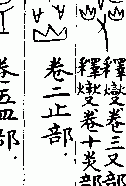 釋燮卷三又部
釋燮卷十炎部
卷二止部.
卷五四部.